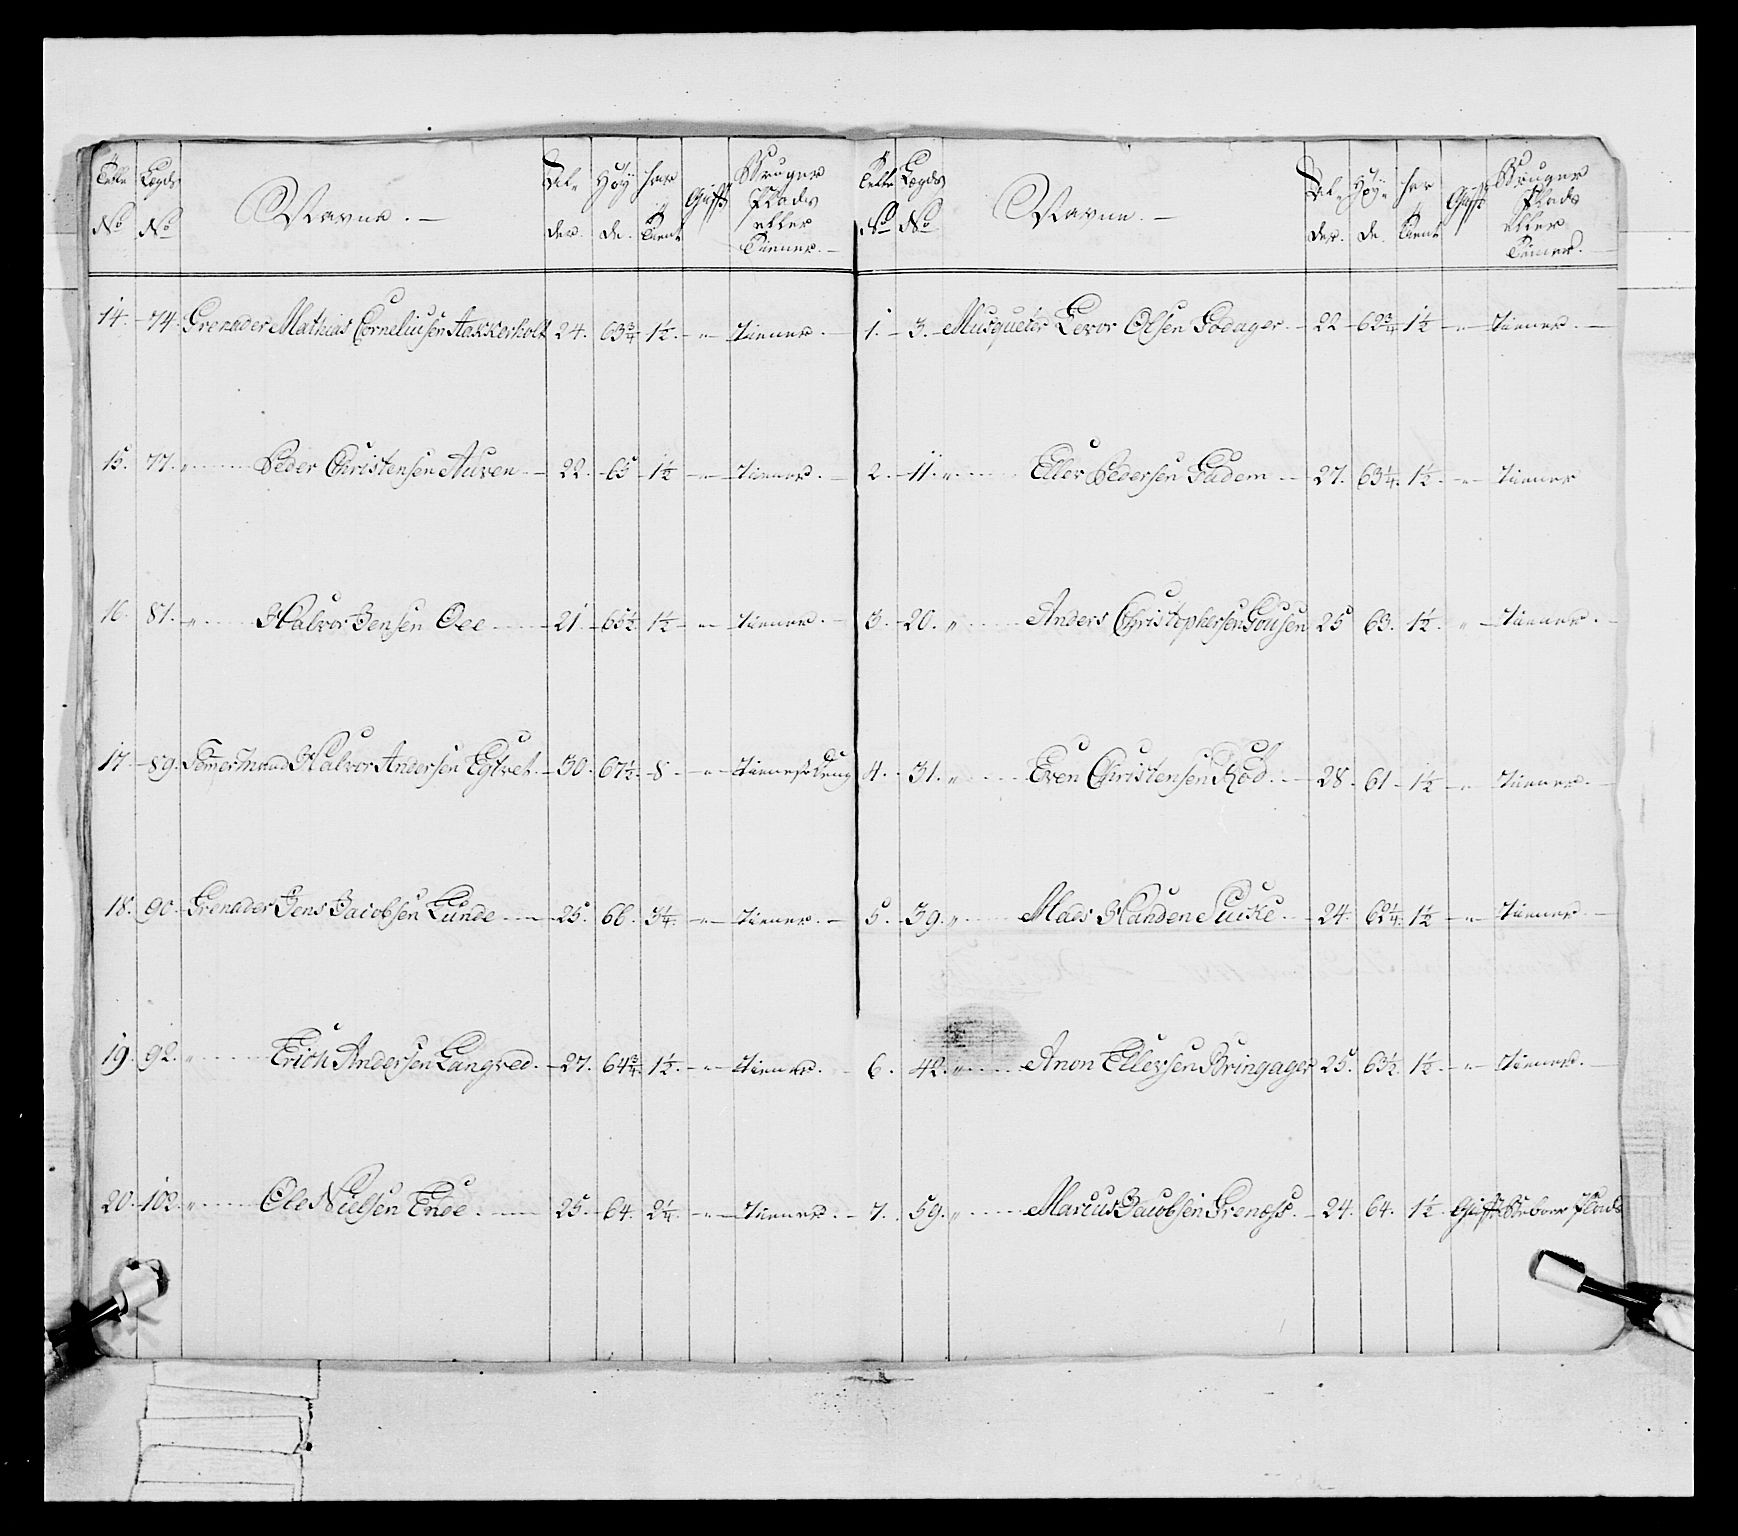 Tælle No Lægds No Navne. Alder. Høyde. har Tient Gift Bruger Plads eller Tiener.
14. 74. Grenader Mathias Corneliusen Aakkerholt 24. 63¾ 1½ " tiener.
15. 77. " Peder Christensen Auven 22. 65 1½ " tiener.
16. 81. " Halvor Jensen Oee 21. 65½ 1½ " tiener.
17. 89. Tømermand Halvor Andersen Egtvet. 30. 67½ 8 "
18. 90. Grenader Jens Jacobsen Lunde 25. 66. 3¼ " tiener.
19. 92. " Erich Andersen Langred. 27. 64¾ 1½ " tiener.
20. 102. " Ole Nielsen Enoe. 25. 64. 2¼ " tiener.
Tælle No Lægds No Navne. Alder. Høyde. har Tient Gift Bruger Plads eller Tiener.
1. 3. Musqueter Levor Olsen Godager. 22 62¾ 1½ " tiener.
2. 11. " Eller Pedersen Gudem 27. 63¼ 1½ " tiener
3. 20. " Anders Christophersen Gousen 25 63. 1½ " tiener.
4. 31. " Even Christensen Rød. 28. 61 1½ " tiener.
5. 39. " Mads 24. 62¼ 1½ " tiener
6. 42. " Anon Ellevsen Bringager 25. 63½ 1½ " tiener.
7. 59. " Marcus Jacobsen Grenæss. 24. 64. 1½ Gift Beboer Plads